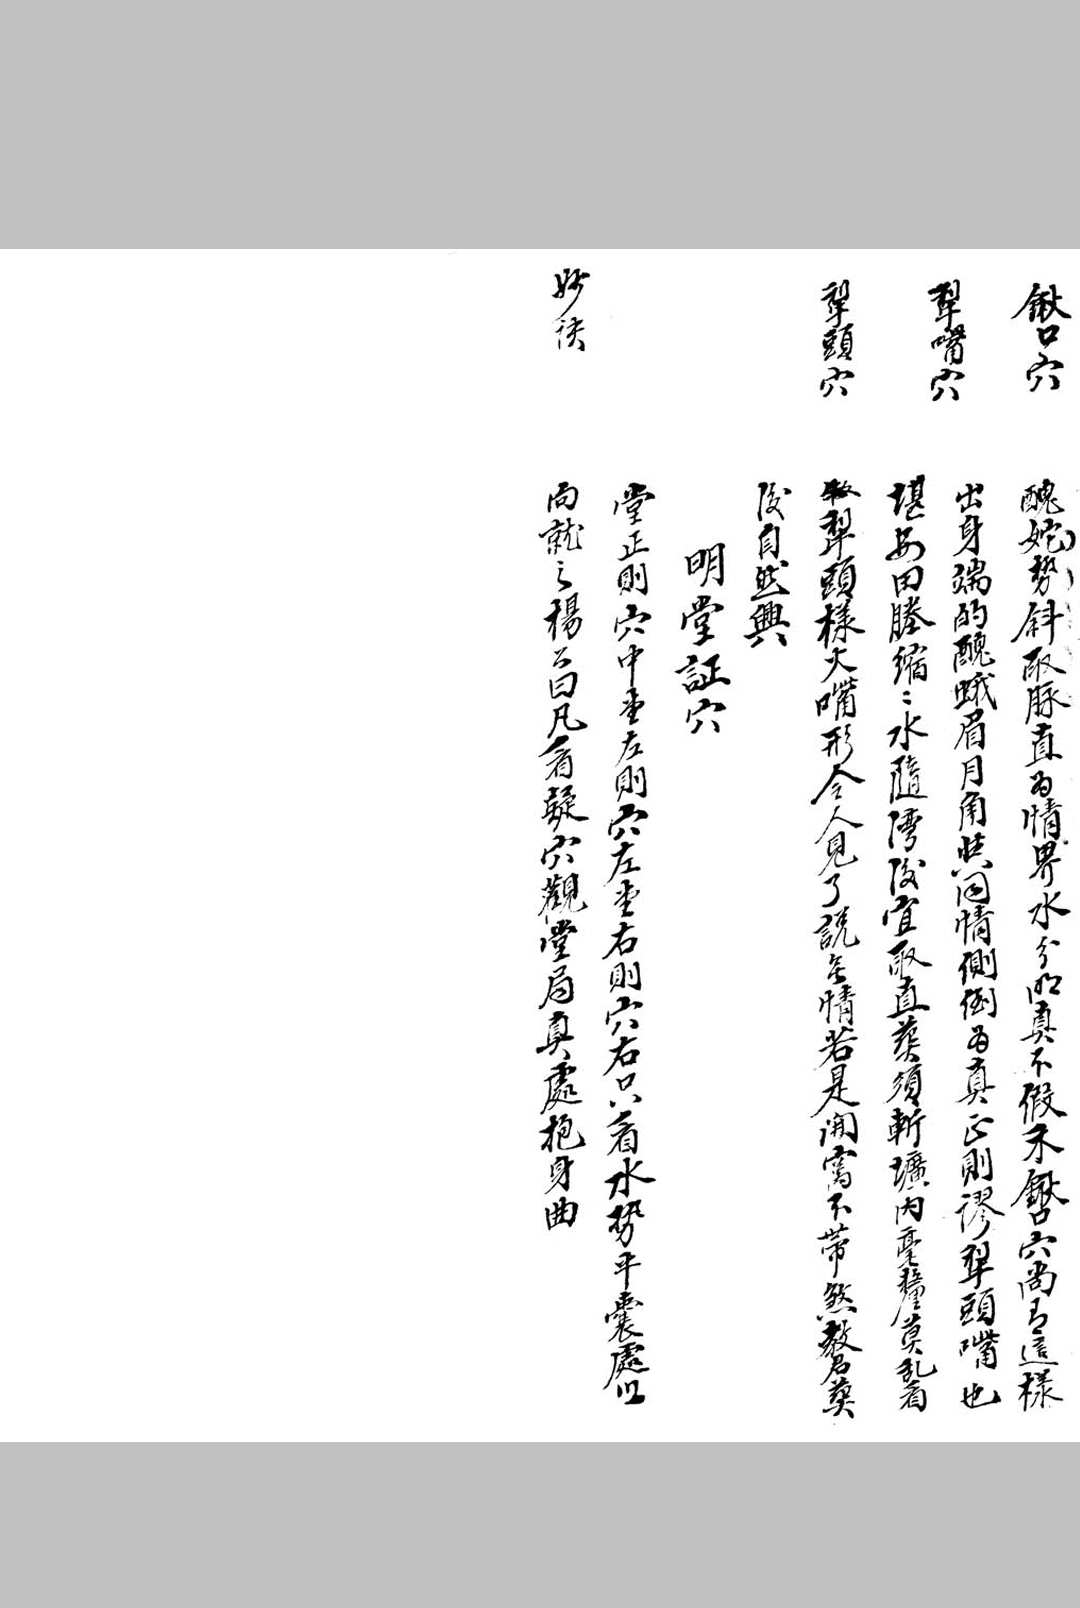 鍬口穴
醜妮勢斜取脉直為情界水分明真不假禾鍬口穴尚有這樣
犁嘴穴
出身端的醜蛾眉月角共同情側倒為真正則謬犁頭嘴也
堪安田塍縮縮水隨灣後宜取直葬須斬壙内毫釐莫乱看
犁頭穴
犁頭樣大嘴形令人見了説无情若是開窩不帶煞教君葬
後自然興
明堂証穴
堂正則穴中堂左則穴左堂右則穴右只看水勢平囊處以
妙訣
向就之楊公曰凡看疑穴觀堂局真處抱身曲